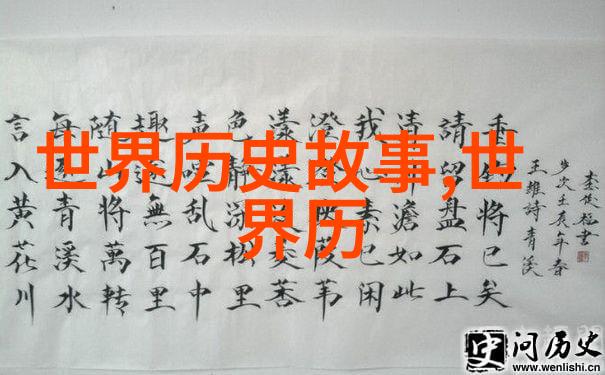 世界历史故事,世
界历
言入黄花川
每逐青溪水
随山将萬转
趣途無百里
声喧乱石中
色静深松里
漾漾
澄澄映葭苇
我心素已闲
清川澹如此
請留盘石上
垂釣将已矣
王維詩青溪
问历史
www.wenlishi.cn